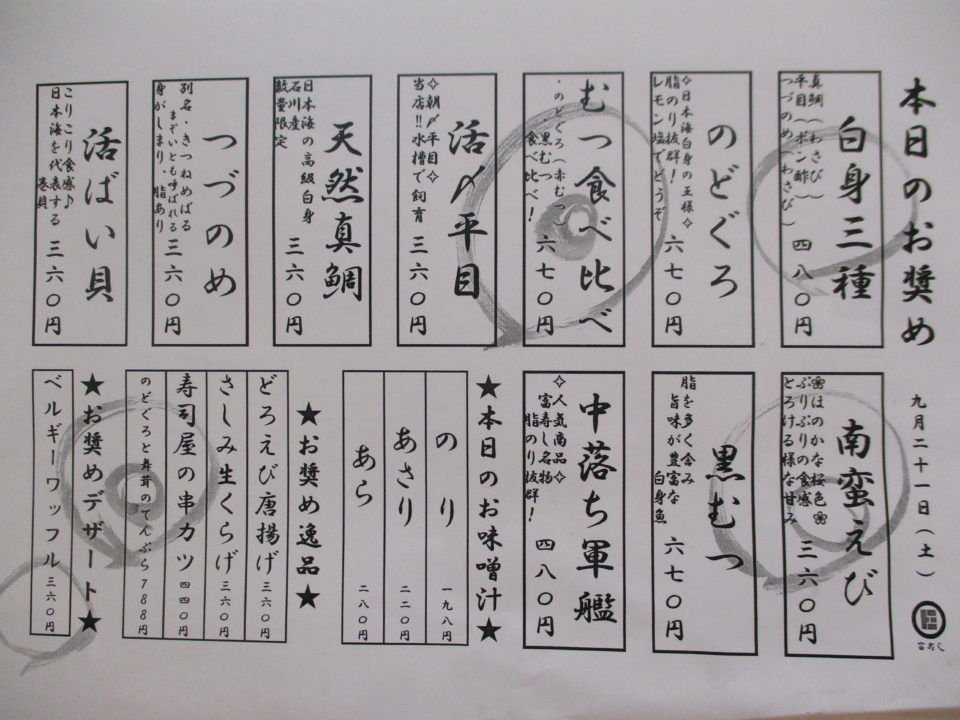 本日のお奨め
九月二十一日(土)
白身三種
真鯛(わさび)
平目(ポン酢)
つづのめ(わさび)
四八〇円
のどぐろ
✧日本海白身の王様✧
脂のり抜群!
レモン塩でどうぞ
六七〇円
むつ食べ比べ
・のどぐろ(赤むつ)
黒むつ
食べ比べ!
六七〇円
活〆平目
✧朝〆平目✧
当店!!水槽で飼育
三六〇円
天然真鯛
日本海の高級白身
石川産
数量限定
三六〇円
つづのめ
別名・きつねめばる
まぞいとも呼ばれる
身がしまり、脂あり
三六〇円
活ばい貝
こりこり食感♪
日本海を代表する
巻貝
三六〇円
南蛮えび
❀ほのかな桜色❀
ぷりぷりの食感
とろける様な甘み
三六〇円
黒むつ
脂を多く含み
旨味が豊富な
白身魚
六七〇円
中落ち軍艦
✧人気商品✧
富寿し名物
脂のり抜群!
四八〇円
★本日のお味噌汁★
のり 一九八円
あさり 二二〇円
あら 二八〇円
★お奨め逸品★
どろえび唐揚げ 三六〇円
さしみ生くらげ 三六〇円
寿司屋の串カツ 四四〇円
のどぐろと舞茸のてんぷら788円
★お奨めデザート★
ベルギーワッフル 三六〇円
富寿し